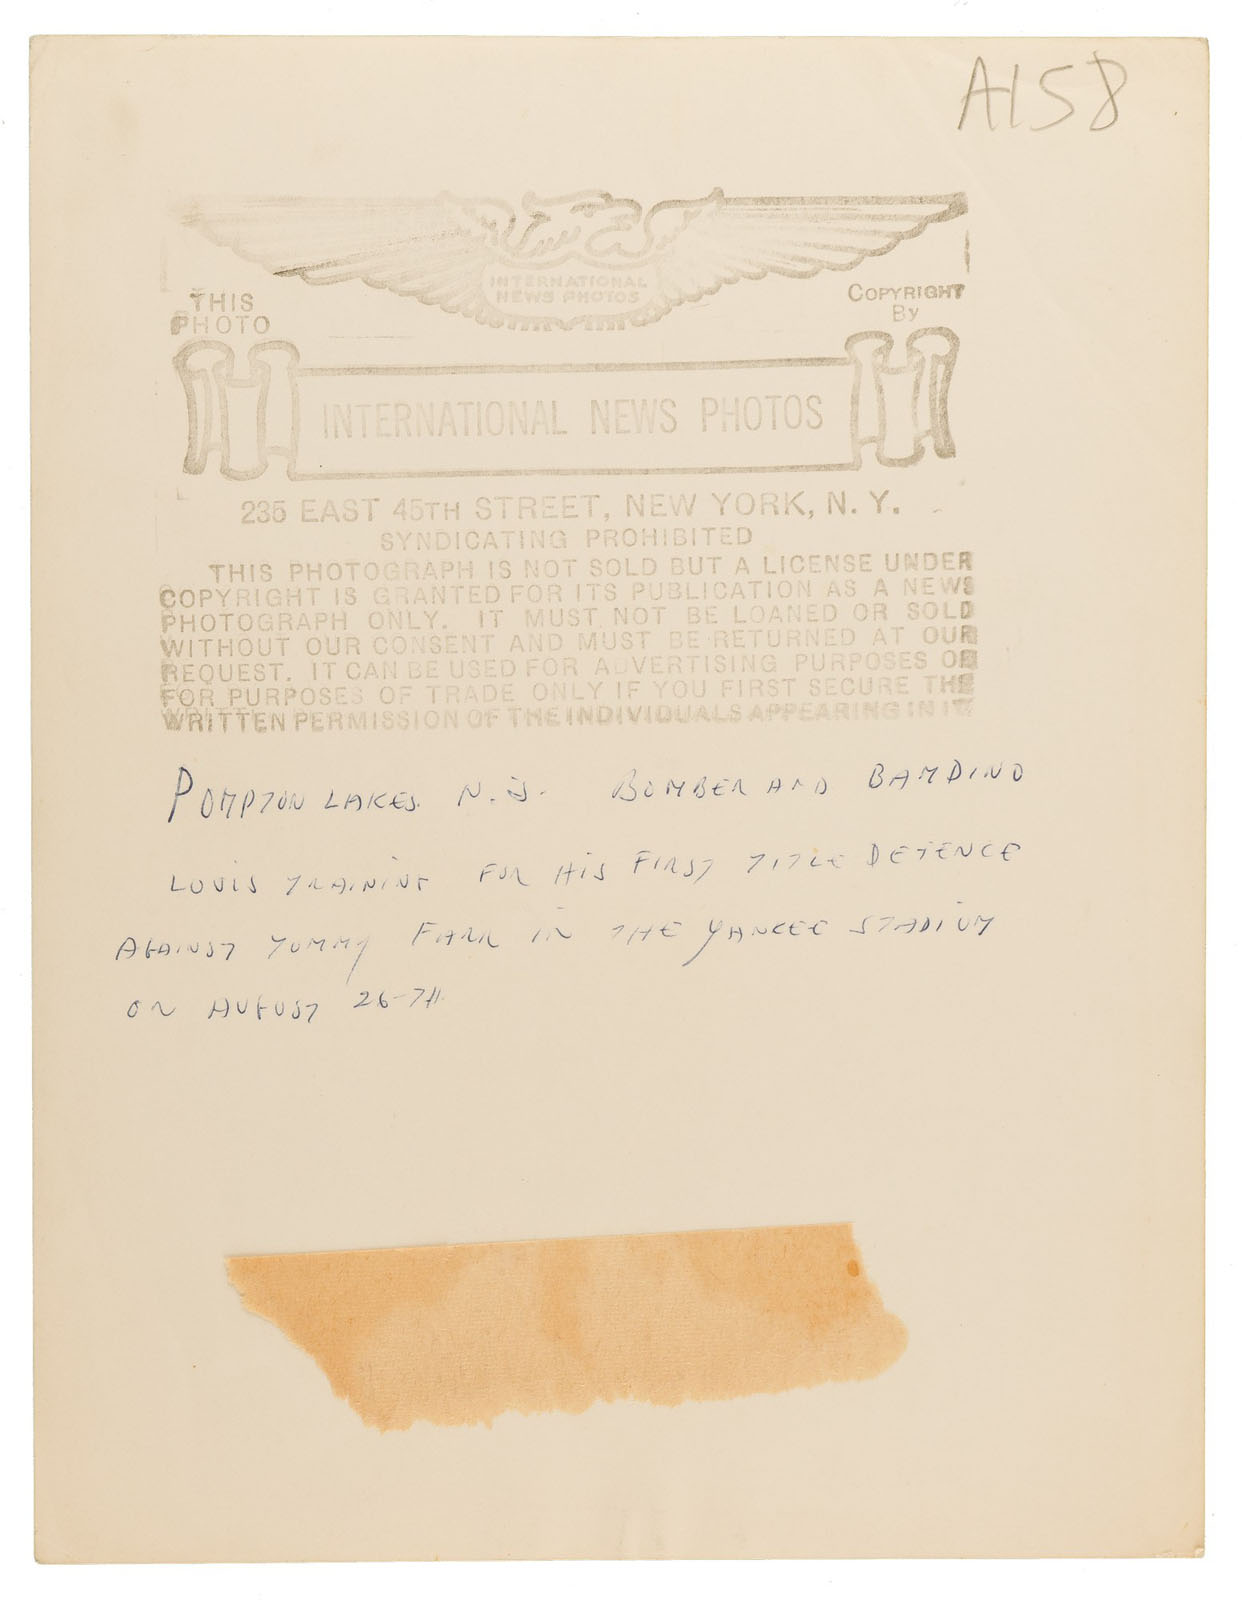 A158
INTERNATIONAL
NEWS PHOTOS
THIS
PHOTO
COPYRIGHT
By
INTERNATIONAL NEWS PHOTOS
235 EAST 45TH STREET, NEW YORK, N. Y.
SYNDICATING PROHIBITED
THIS PHOTOGRAPH IS NOT SOLD BUT A LICENSE UNDER
COPYRIGHT IS GRANTED FOR ITS PUBLICATION AS A NEWS
PHOTOGRAPH ONLY. IT MUST NOT BE LOANED OR SOLD
WITHOUT OUR CONSENT AND MUST BE RETURNED AT OUR
REQUEST. IT CAN BE USED FOR ADVERTISING PURPOSES OR
FOR PURPOSES OF TRADE ONLY IF YOU FIRST SECURE THE
WRITTEN PERMISSION OF THE INDIVIDUALS APPEARING IN IT
POMPTON LAKES. N.J. BOMBER AND BAMDINO
LOUIS TRAINING FOR HIS FIRST TITLE DEFENCE
AGAINST TOMMY FARR IN THE YANCEE STADIUM
ON AUGUST 26-TH.